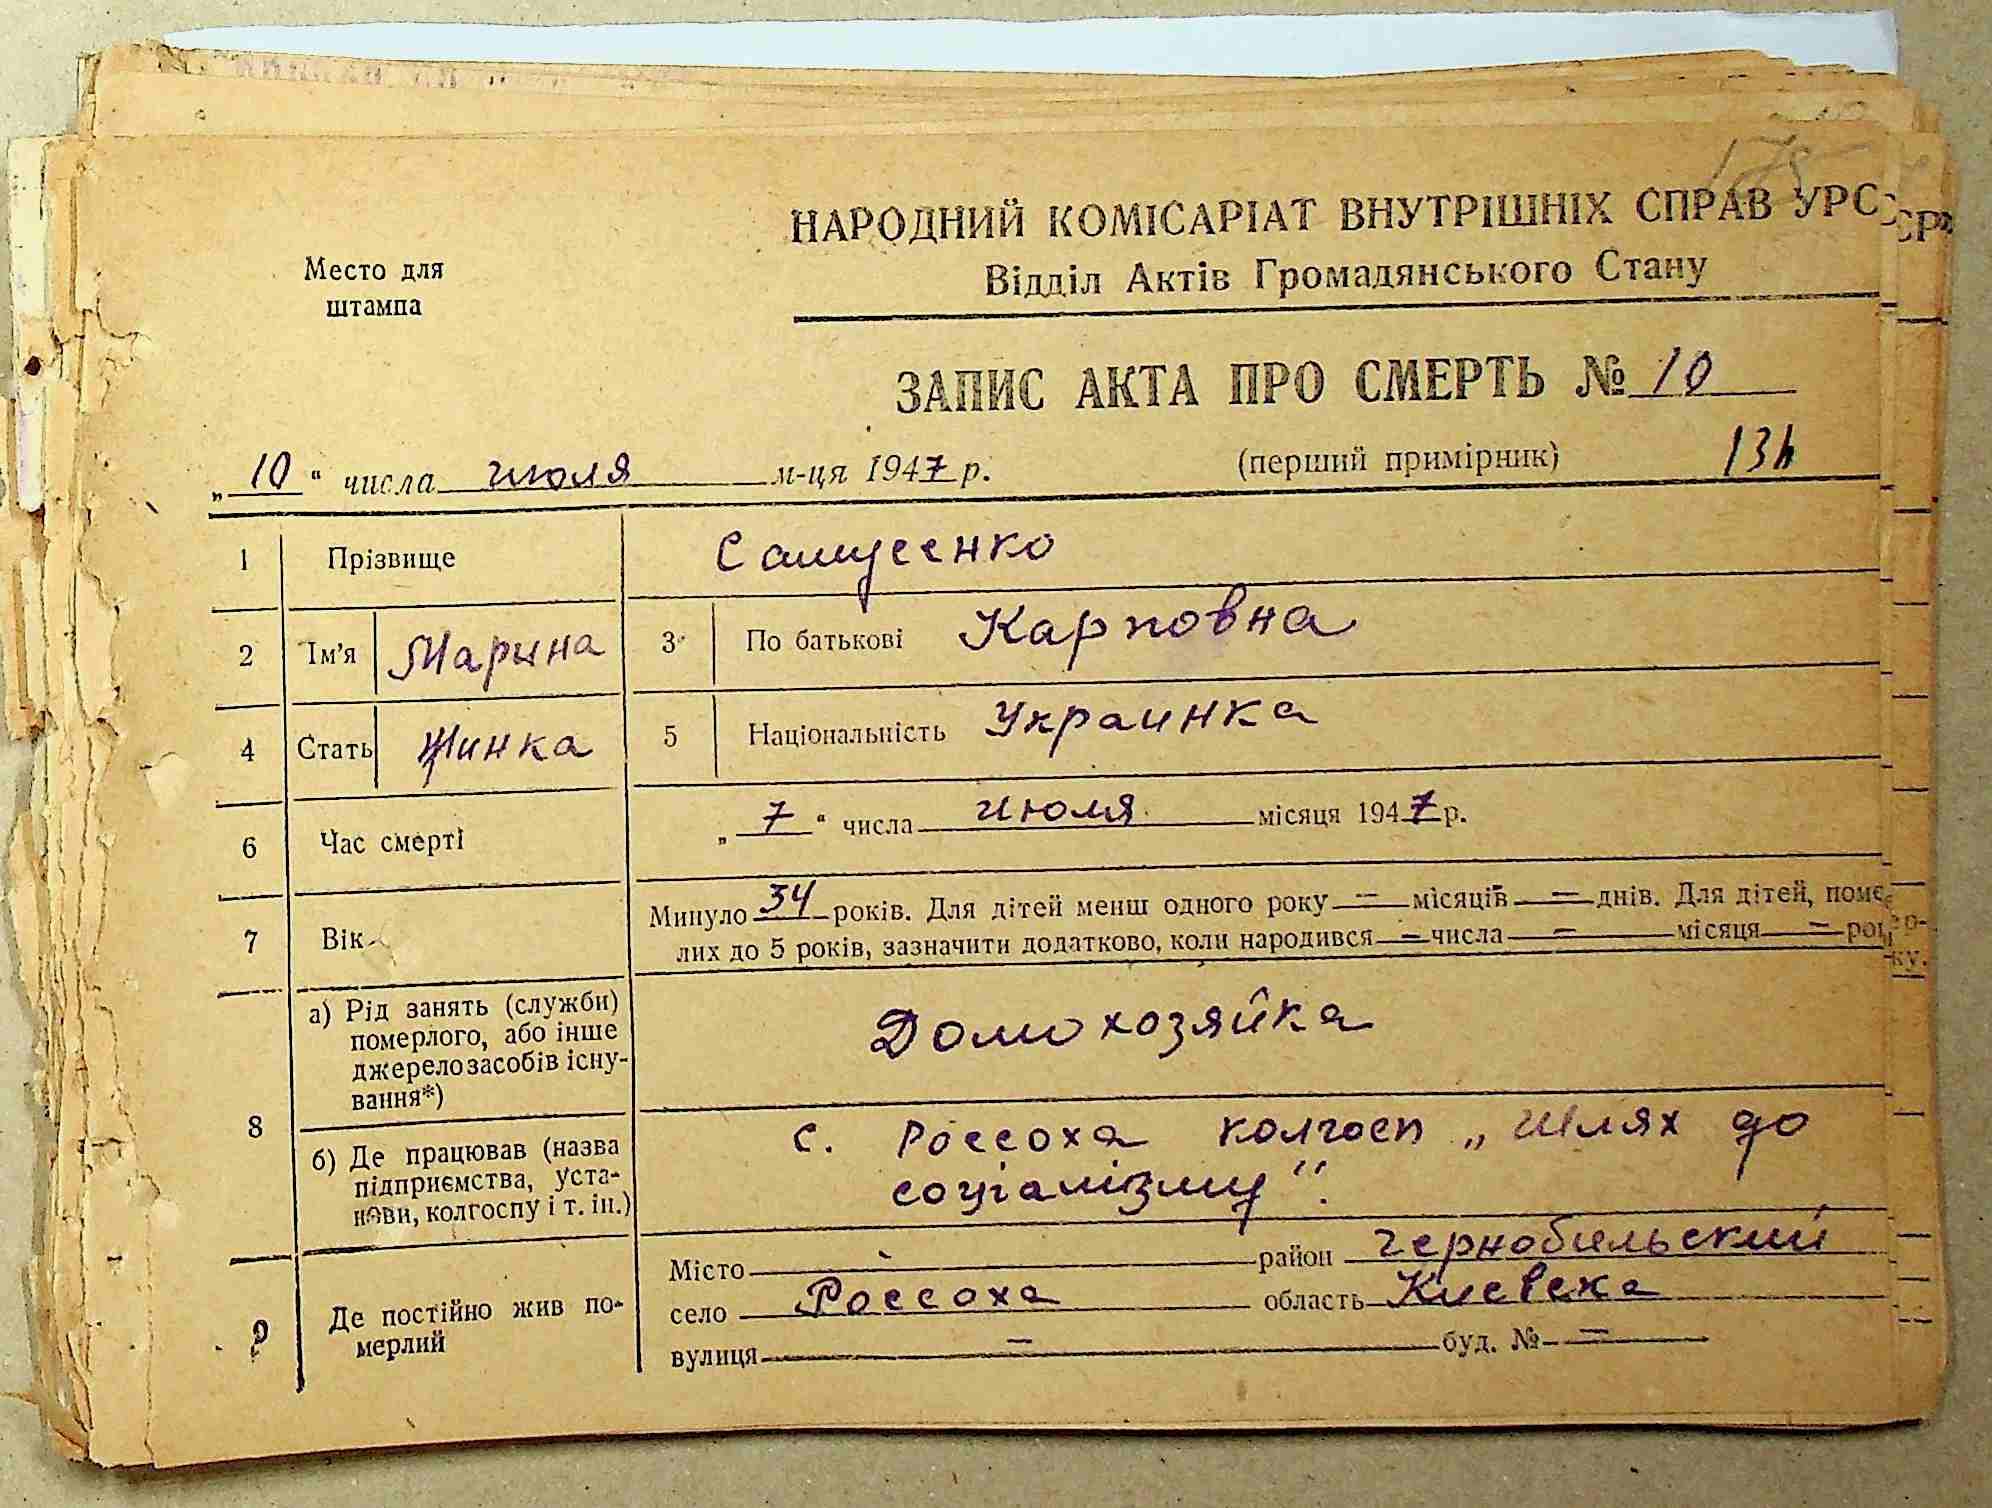 175
НАРОДНИЙ КОМІСАРІАТ ВНУТРІШНІХ СПРАВ УРС
Відділ Актів Громадянського Стану
Место для
штампа
ЗАПИС АКТА ПРО СМЕРТЬ № 10
„ 10 “ числа июля м-ця 1947 р. (перший примірник)
1 Прізвище Самусенко
2 Ім’я Марина 3 По батькові Карповна
4 Стать Жинка 5 Національність Украинка
6 Час смерті „ 7 “ числа июля місяця 1947 р.
7 Вік Минуло 34 років. Для дітей менш одного року — місяців — днів. Для дітей, поме
лих до 5 років, зазначити додатково, коли народився — числа — місяця — ро
8 а) Рід занять (служби)
померлого, або інше
джерело засобів існу-
вання*) Домохозяйка
б) Де працював (назва
підприємства, уста-
нови, колгоспу і т. ін.) с. Россоха колгосп „Шлях до
соціалізму“.
9 Де постійно жив по-
мерлий
Місто - район Чернобильский
село Россоха область Киевска
вулиця — буд. № —